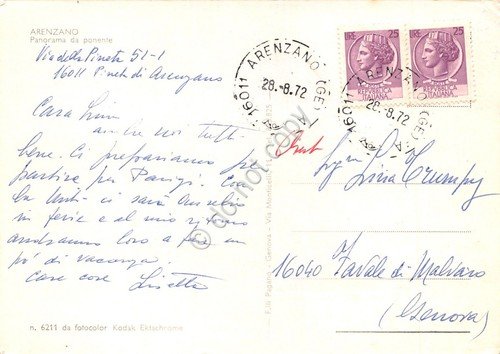 ARENZANO
Panorama da ponente
Via della Pineta 51-1
16011 Pineta di Arenzano
Cara Lina
anche noi tutti
bene. Ci prepariamo per
partire per Parigi. Con
la ci sarà Anselmo
in ferie e al mio ritorno
andranno loro a fare un
po' di vacanza.
Care cose Lisetta
n. 6211 da fotocolor Kodak Ektachrome
F.lli Pagano - Genova - Via Monticelli
do not copy
16011 ARENZANO (GE)
28-8.72
16011 ARENZANO (GE)
28-8.72
LIRE 25
LIRE 25
REPUBBLICA ITALIANA
REPUBBLICA ITALIANA
Sig.ra
Lina Trumpy
16040 Favale di Malvaro
(Genova)